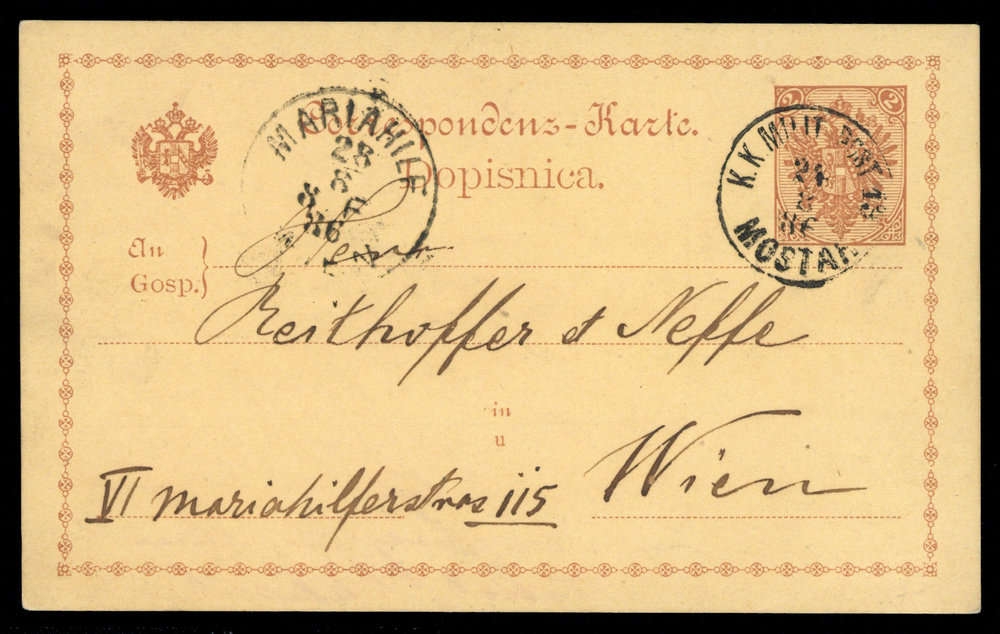 Correspondenz-Karte.
Dopisnica.
2 2
K. K. MILIT. POST 13
24
8
86
MOSTAR
MARIAHILF
28
8
86
An
Gosp.
Herrn
Reithoffer et Neffe
in
u
Wien
VI Mariahilferstras 115